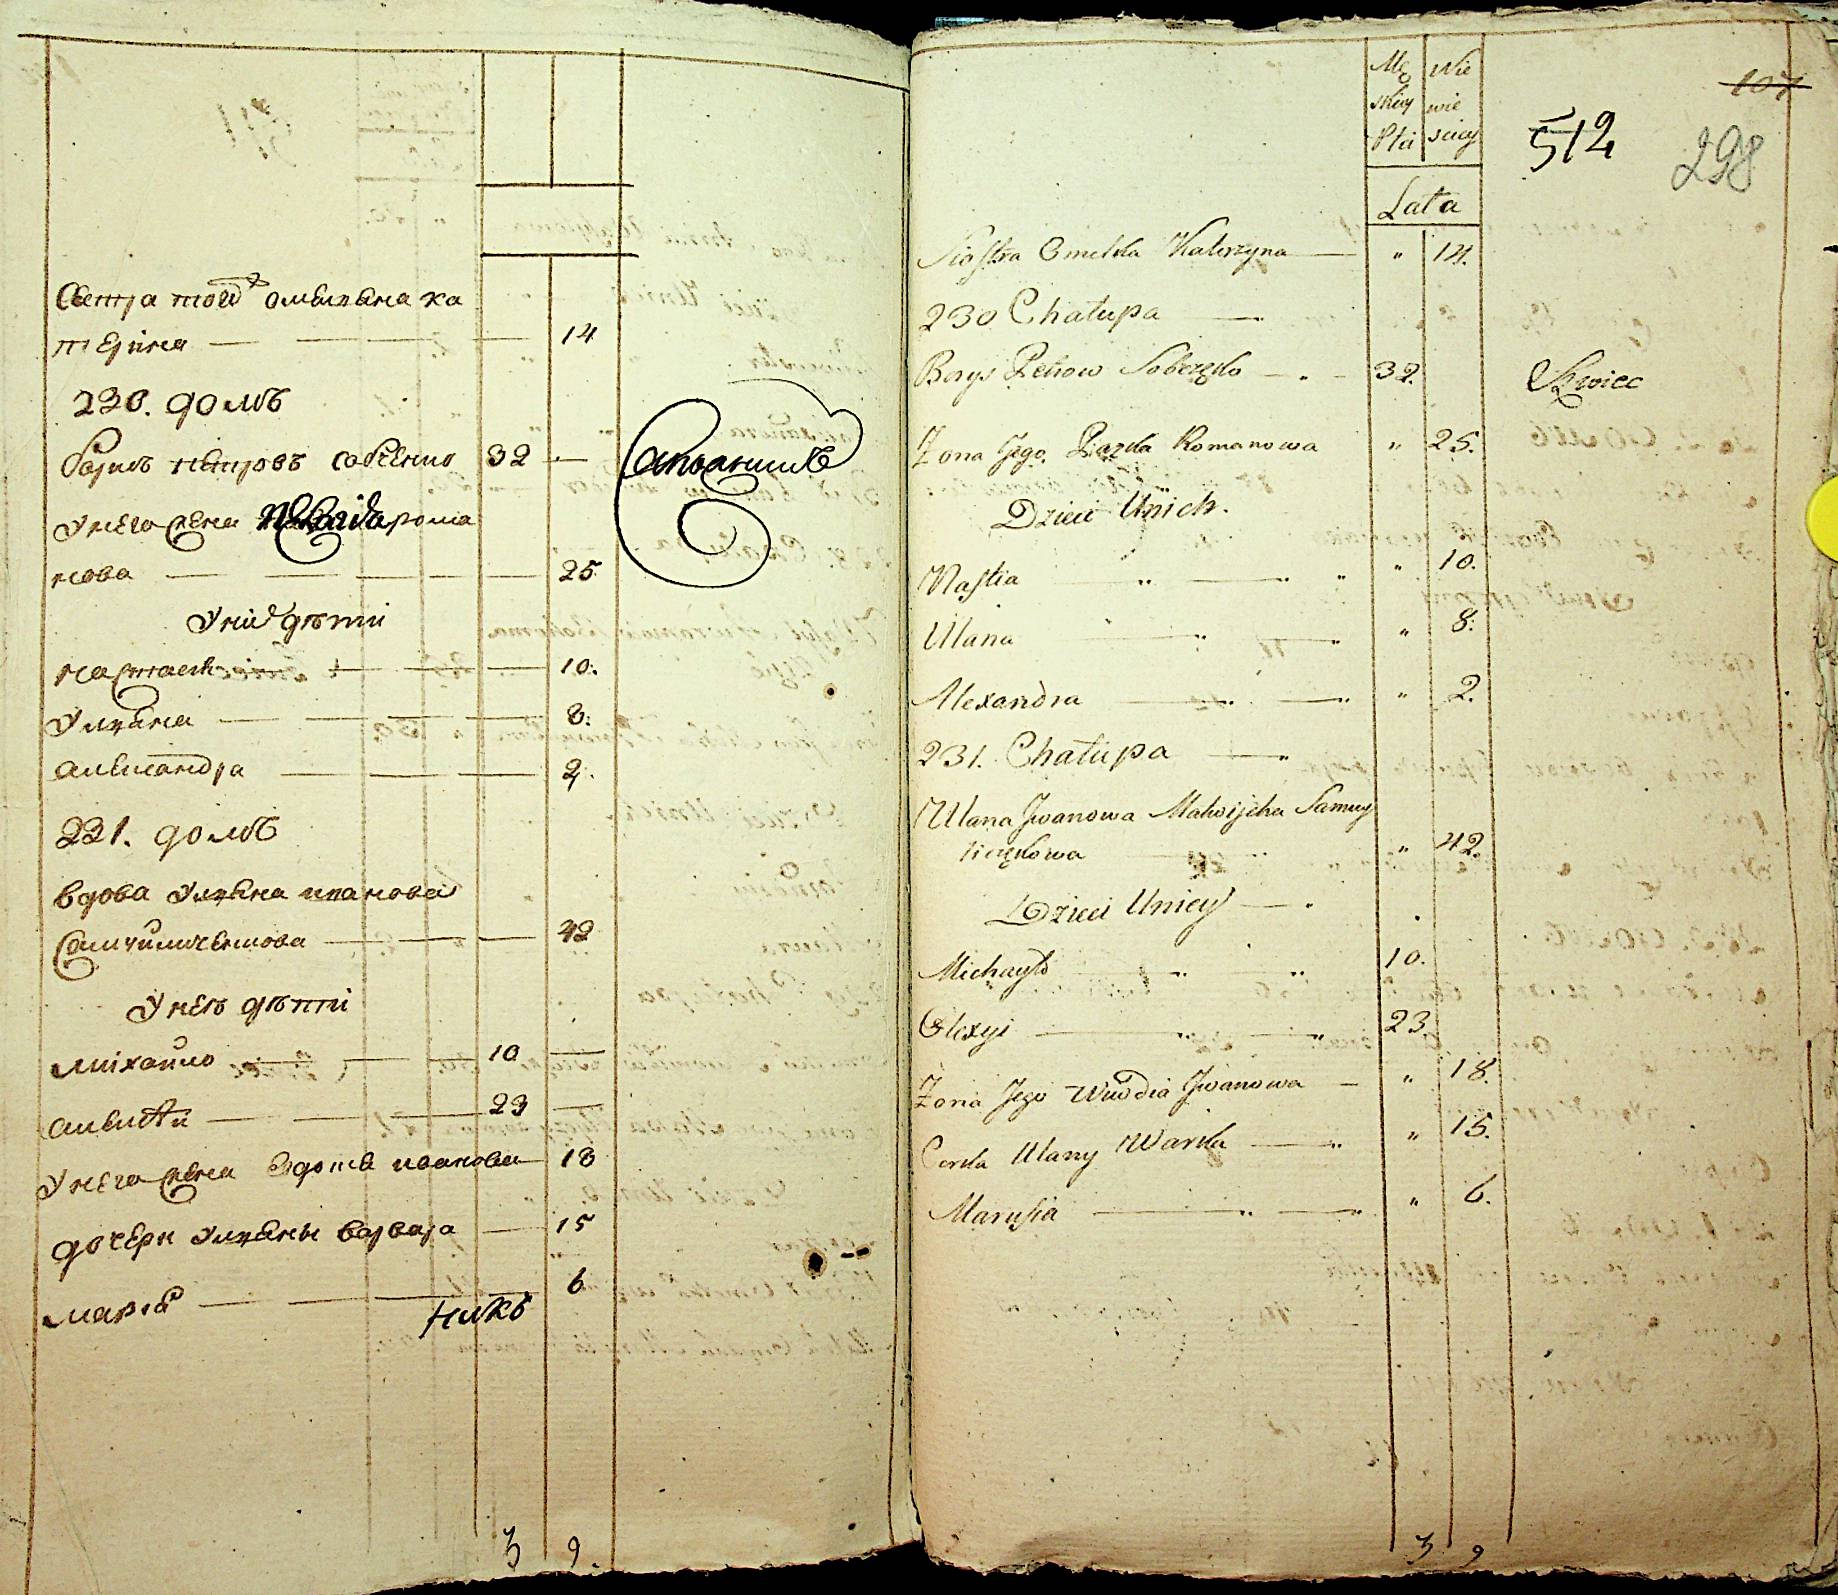 Сестра той омеляна ка
терина — 14
230. домъ
борисъ петровъ собченко 32 — Сапожникъ
у него жена романова — 25
у них дѣти
настася — 10.
Уляна — 8:
александра — 2.
231. домъ
вдова Уляна иванова
42
У нею дѣти
михайло — 10 —
алексѣй — 23 —
у него жена Евдотя иванова — 18
дочери Уляны варвара — 15
мария — 6
3 9.
Mę Nie
skiey wie
Płci sciey
107
512
298
Lata
Siostra Omelka Katerzyna — „ 14.
230 Chałupa —
Borys Petrow Sobczęko — „ — 32. Szwiec
Żona Jego Romanowa „ 25.
Dzieci Unich.
Nastia „ — „ „ 10.
Ulana „ — „ 8.
Alexandra — „ — „ „ 2.
231. Chałupa — „
Ulana Jwanowa Samuy
„ 42.
Dzieci Unicy —
Michayło „ „ 10.
Olexyi — „ — „ 23.
Żona Jego Wudia Jwanowa — „ 18.
Corka Ulany Warka — „ „ 15.
Marusia — „ — „ „ 6.
3 9